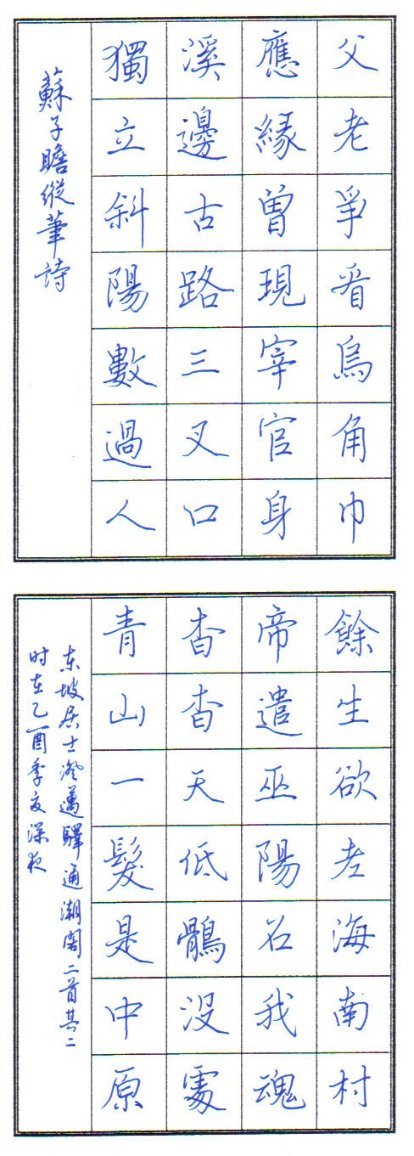 父老爭看烏角巾
應緣曾現宰官身
溪邊古路三叉口
獨立斜陽數過人
蘇子瞻縱筆詩
餘生欲老海南村
帝遣巫陽召我魂
杳杳天低鶻没處
青山一髮是中原
东坡居士澄邁驛通潮閣二首其二
时在乙酉季夏深夜